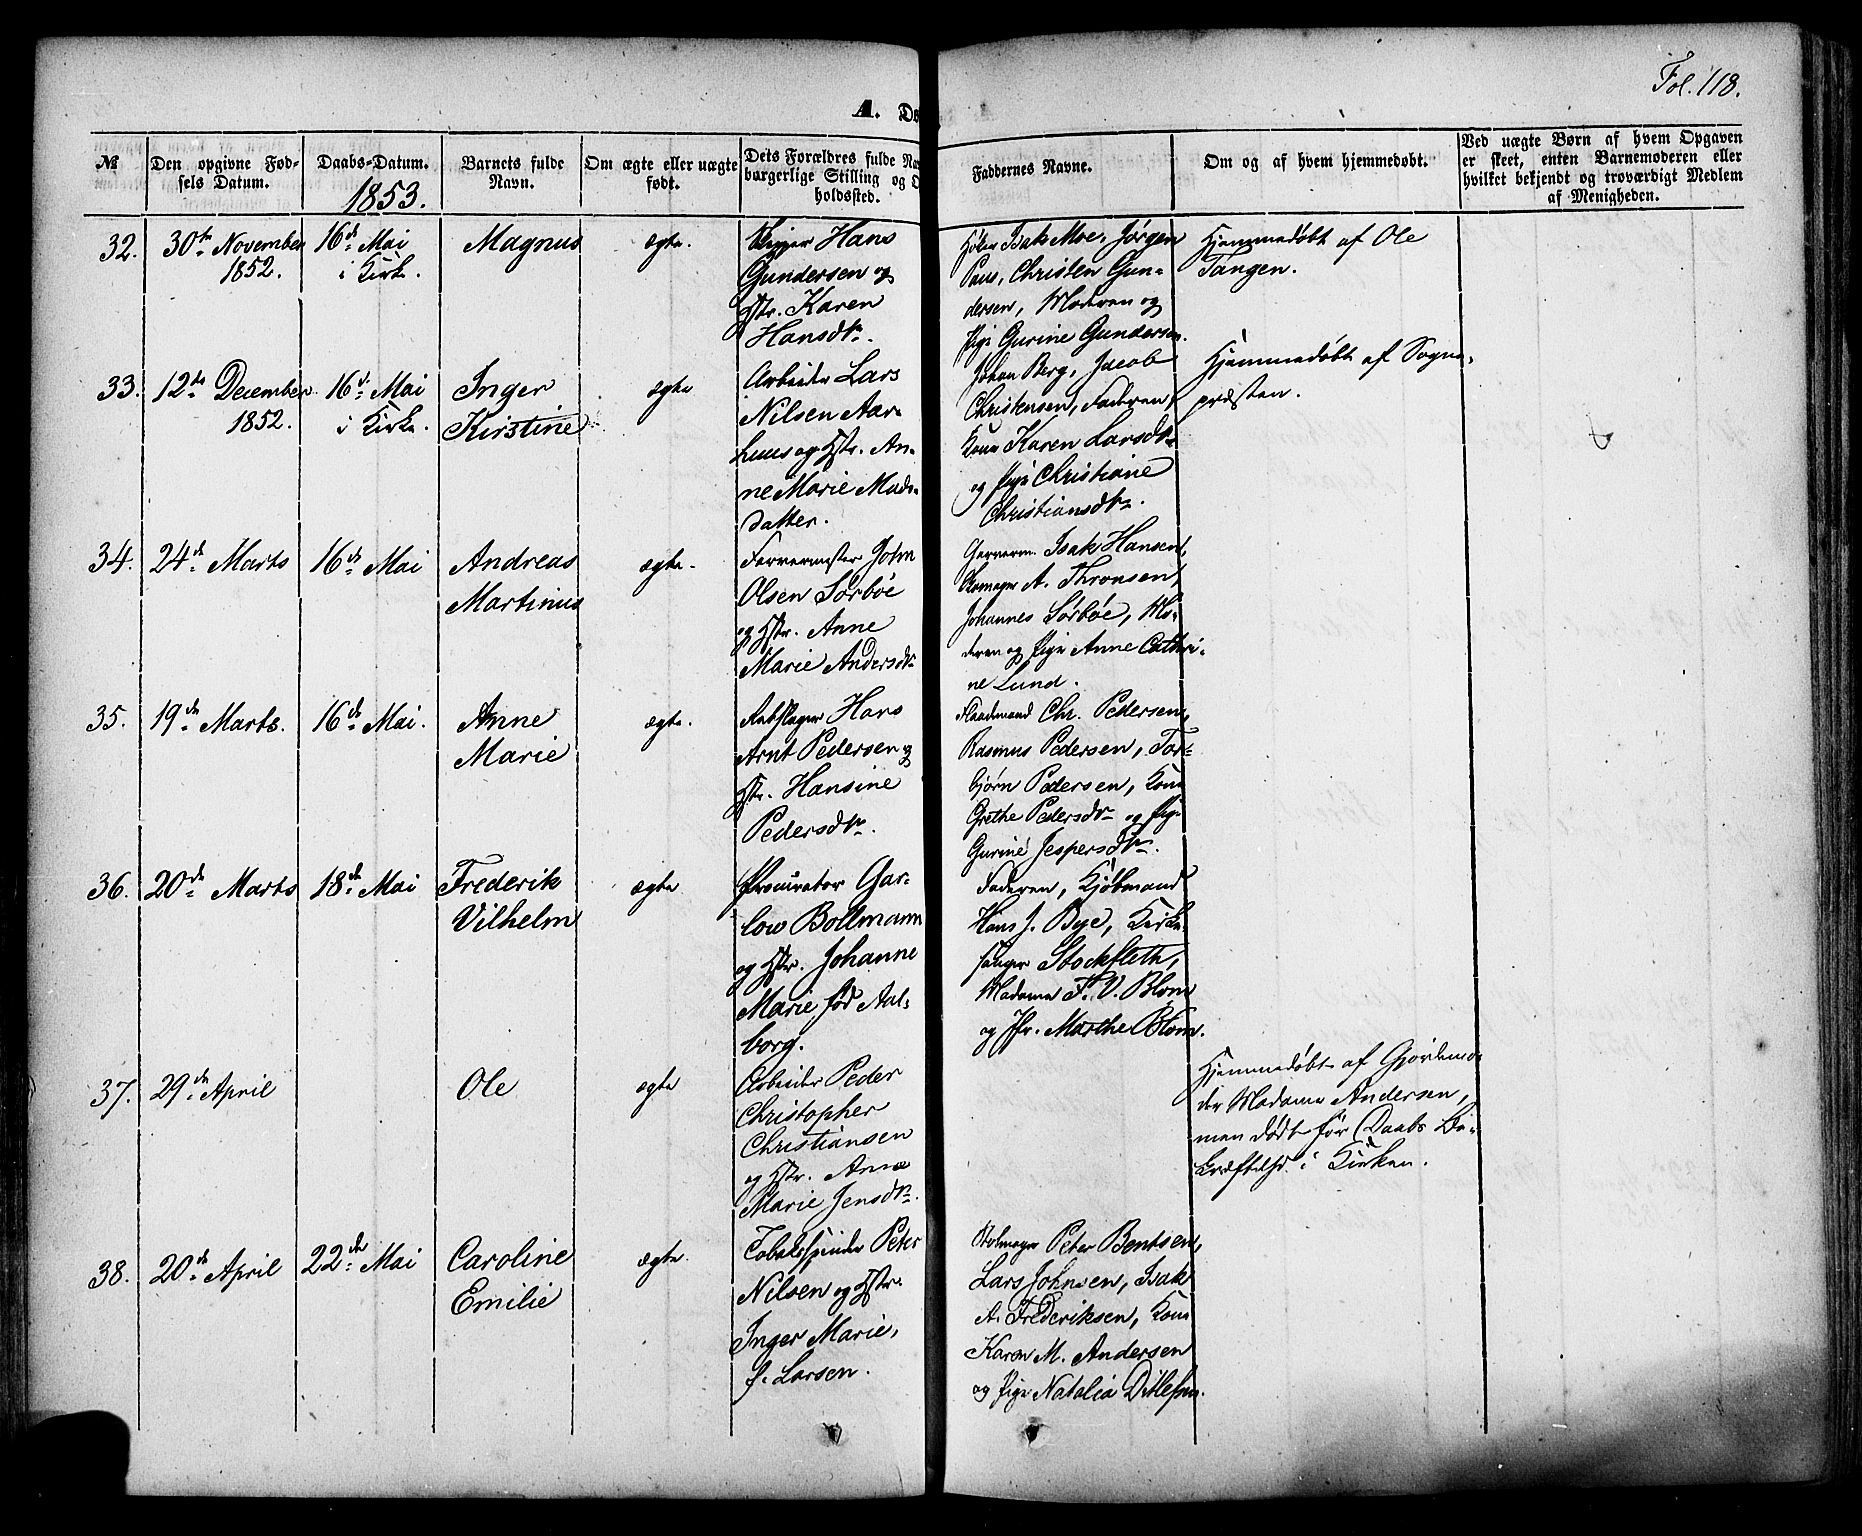 Fol. 118.
A. Dø
№
Den opgivne Fød-
sels Datum.
Daabs-Datum.
1853.
Barnets fulde
Navn.
Om ægte eller uægte
født.
Dets Forældres fulde Na
borgerlige Stilling og O
holdssted.
Faddernes Navne.
Om og af hvem hjemmedøbt.
Ved uægte Børn af hvem Opgaven
er skeet, enten Barnemoderen eller
hvilket bekjendt og troværdigt Medlem
af Menigheden.
32.
30te November
1852.
16de Mai
i Kirke.
Magnus
ægte.
Hans
Gundersen og
Hstr. Karen
Hansdtr.
Isak Moe, Jørgen
Paus, Christen Gun-
dersen, Moderen og
Pige Gurine Gundersen.
Hjemmedøbt af Ole
Tangen.
33.
12te December
1852.
16de Mai
i Kirke.
Inger
Kirstine
ægte
Arbeider Lars
Nilsen Aar-
huus og Hstr. An-
ne Marie Mads-
datter.
Johan Berg, Jacob
Christensen, Faderen,
Kone Karen Larsdtr
og Pige Christiane
Christiansdtr.
Hjemmedøbt af Sogne-
præsten.
34.
24de Marts
16de Mai
Andreas
Martinus
ægte.
Farvermester John
Olsen Sørbøe
og Hstr. Anne
Marie Andersdtr
Garverm. Isak Hansen,
A. Thronsen,
Johannes Sørbøe, Mo-
deren og Pige Anne Cathri-
ne Lund.
35.
19de Marts.
16de Mai.
Anne
Marie
ægte.
Rebslager Hans
Arnt Pedersen og
Hstr. Hansine
Pedersdtr.
Chr. Pedersen,
Rasmus Pedersen, Tor-
bjørn Pedersen, Kone
Grethe Pedersdtr og Pige
Gurine Jespersdtr.
36.
20de Marts
18de Mai
Frederik
Vilhelm
ægte
Procurator Gar-
low Bollmann
og Hstr. Johanne
Marie fød Aal-
borg.
Faderen, Kjøbmand
Hans J. Bye, Kirke-
sanger Stockfleth,
Madame F. V. Blom
og Jfr. Marthe Blom.
37.
29de April
Ole
ægte
Arbeider Peder
Christopher
Christiansen
og Hstr. Anne
Marie Jensdtr.
Hjemmedøbt af Gjordemo-
der Madame Andersen,
men død før Daabs Be-
kræftelse i Kirken.
38.
20de April
22de Mai
Caroline
Emilie
ægte.
Tobaksspinder Peter
Nilsen og Hstr.
Inger Marie,
f. Larsen.
Peter Bentsen,
Lars Johnsen, Isak
A. Frederiksen, Kone
Karen M. Andersen
og Pige Natalia Ditlefsen.